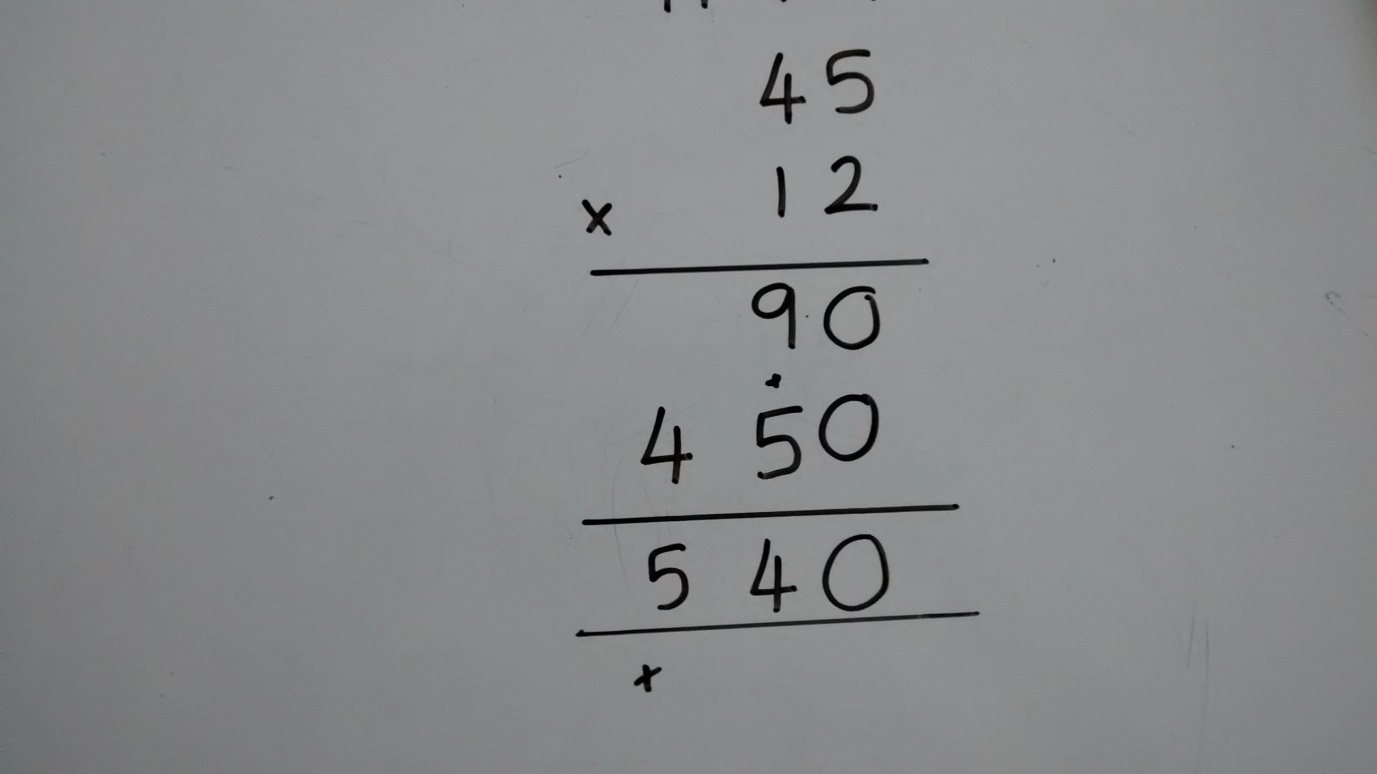 45
x 12
90
450
540